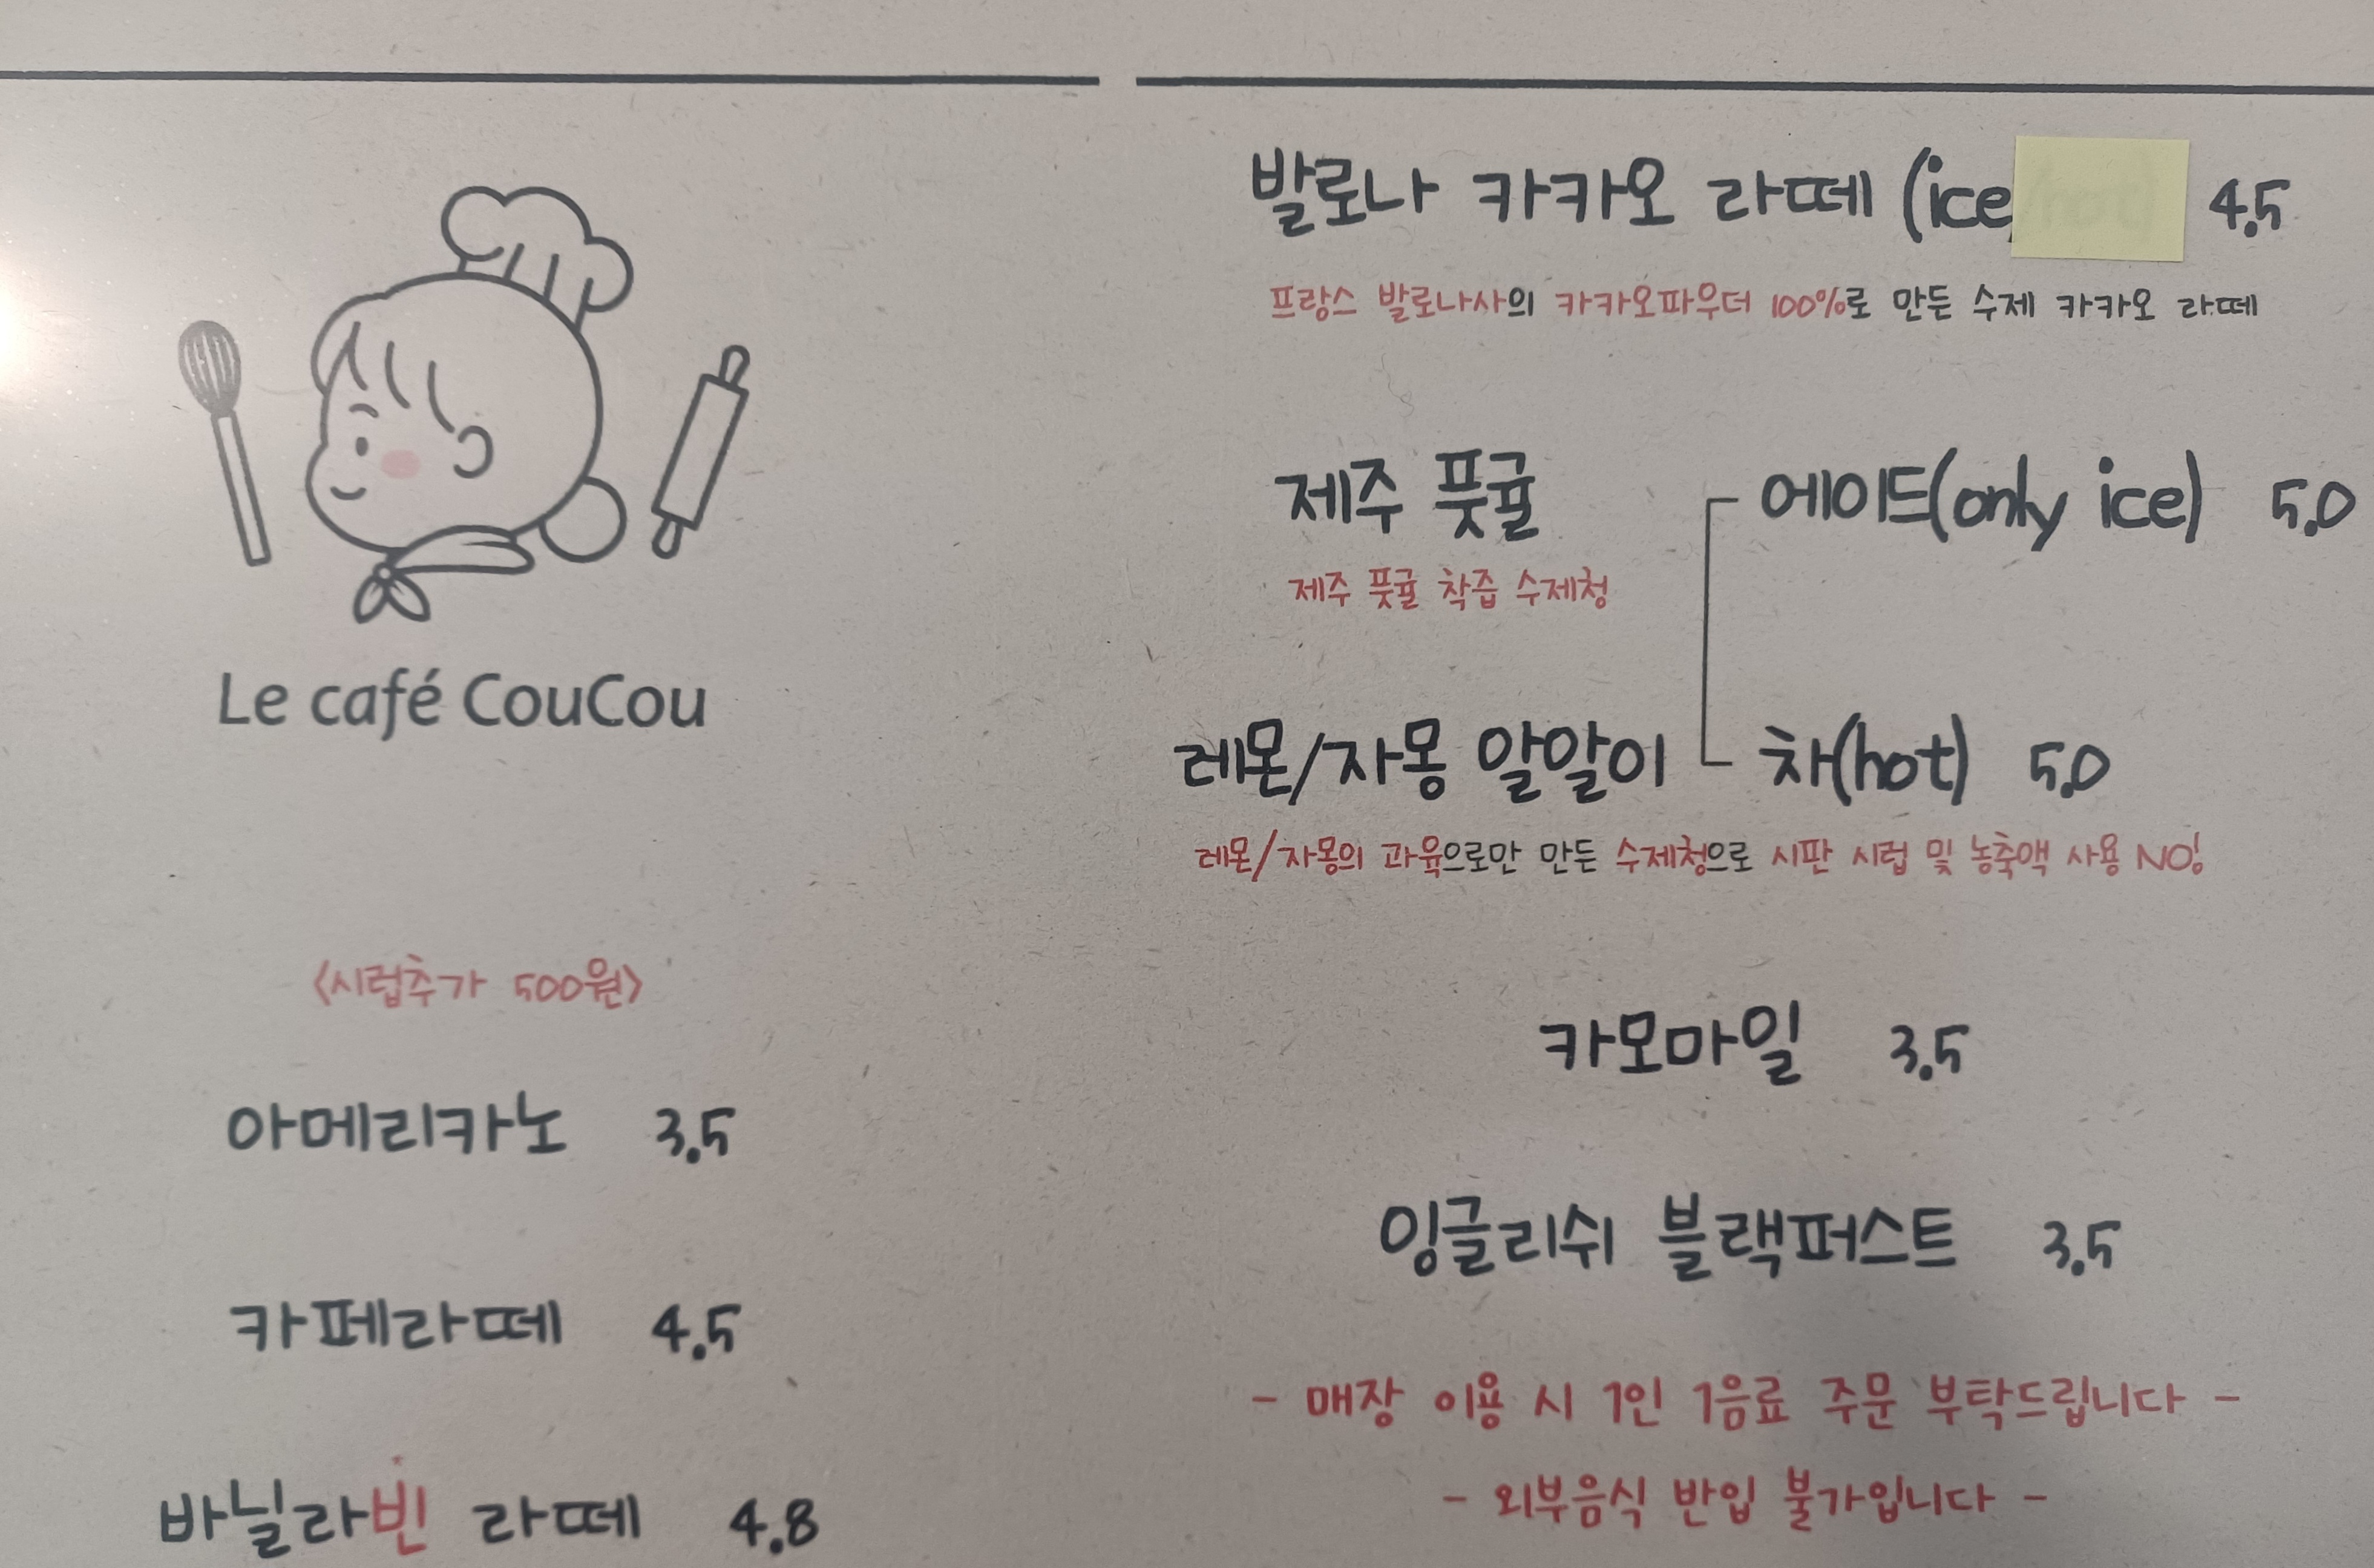 Le café CouCou
<시럽추가 500원>
아메리카노 3.5
카페라떼 4.5
바닐라빈 라떼 4.8
발로나 카카오 라떼 (ice 4.5
프랑스 발로나사의 카카오파우더 100%로 만든 수제 카카오 라떼
제주 풋귤
제주 풋귤 착즙 수제청
에이드(only ice) 5.0
레몬/자몽 알알이
차(hot) 5.0
레몬/자몽의 과육으로만 만든 수제청으로 시판 시럽 및 농축액 사용 NO!
카모마일 3.5
잉글리쉬 블랙퍼스트 3.5
- 매장 이용 시 1인 1음료 주문 부탁드립니다 -
- 외부음식 반입 불가입니다 -